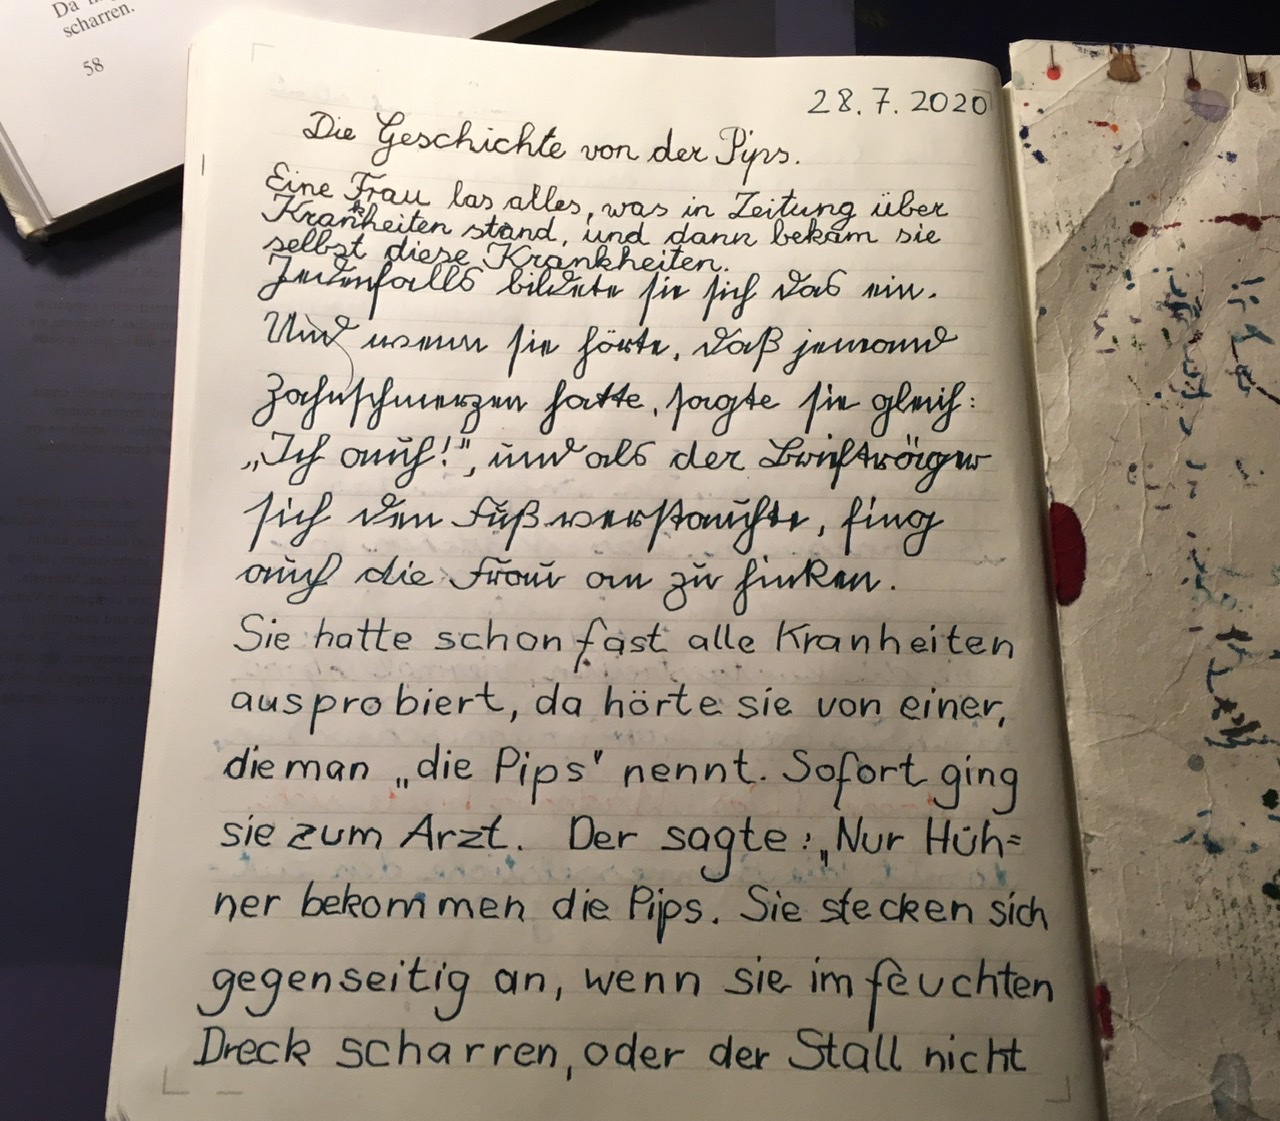 Da
scharren.
58
28.7.2020
Die Geschichte von der Pips.
Eine Frau las alles, was in Zeitung über
Krankheiten stand, und dann bekam sie
selbst diese Krankheiten.
Jedenfalls bildete sie sich das ein.
Und wenn sie hörte, daß jemand
Zahnschmerzen hatte, sagte sie gleich:
„Ich auch!", und als der Briefträger
sich den Fuß verstauchte, fing
auch die Frau an zu hinken.
Sie hatte schon fast alle Kranheiten
ausprobiert, da hörte sie von einer,
die man „die Pips" nennt. Sofort ging
sie zum Arzt. Der sagte: „Nur Hüh=
ner bekommen die Pips. Sie stecken sich
gegenseitig an, wenn sie im feuchten
Dreck scharren, oder der Stall nicht